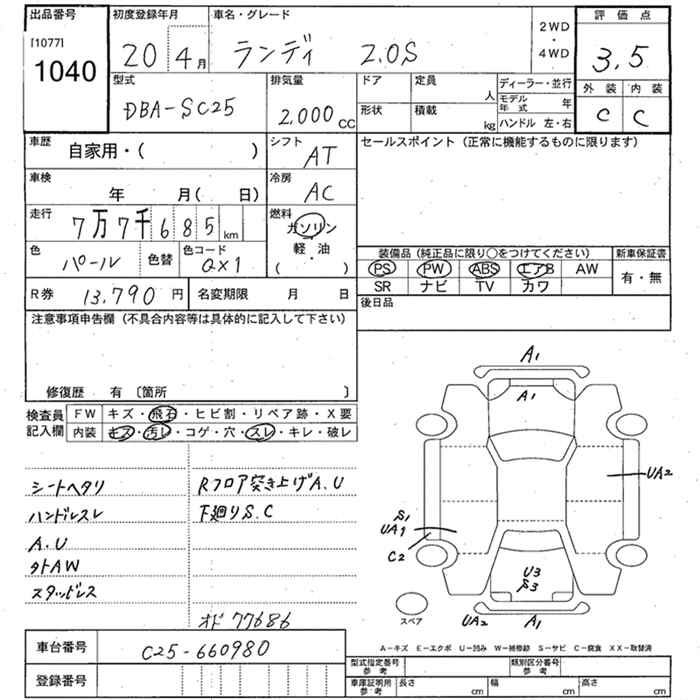 出品番号 初度登録年月 車名・グレード 2WD・4WD 評価点
[1077]
1040 20 4月 ランディ 2.0S 3.5
型式 DBA-SC25 排気量 2,000cc ドア 定員 人 ディーラー・並行 外装 内装
形状 積載 kg モデル年式 年 C C
ハンドル 左・右
車歴 自家用・( ) シフト AT セールスポイント (正常に機能するものに限ります)
車検 年 月( 日) 冷房 AC
走行 7万7千685km 燃料 ガソリン・軽油 ( ・ )
色 パール 色替 色コード QX1 装備品 (純正品に限り○をつけてください) 新車保証書
PS PW ABS エアB AW 有・無
R券 13,790円 名変期限 月 日 SR ナビ TV カワ
注意事項申告欄 (不具合内容等は具体的に記入して下さい) 後日品
修復歴 有 〔箇所 〕
検査員記入欄 FW キズ・飛石・ヒビ割・リペア跡・X要
内装 キズ・汚レ・コゲ・穴・スレ・キレ・破レ
シートヘタリ Rフロア突き上げA.U
ハンドルスレ 下廻りS.C
A.U
外AW
スタッドレス
オド 77686
A1
A1
UA2
S1
UA1
C2
U3
S3
UA2 A1
スペア
A-キズ E-エクボ U-凹み W-補修跡 S-サビ C-腐食 XX-取替済
車台番号 C25-660980
型式指定番号 参考 類別区分番号 参考
登録番号 車庫証明用 参考 長さ cm 幅 cm 高さ cm